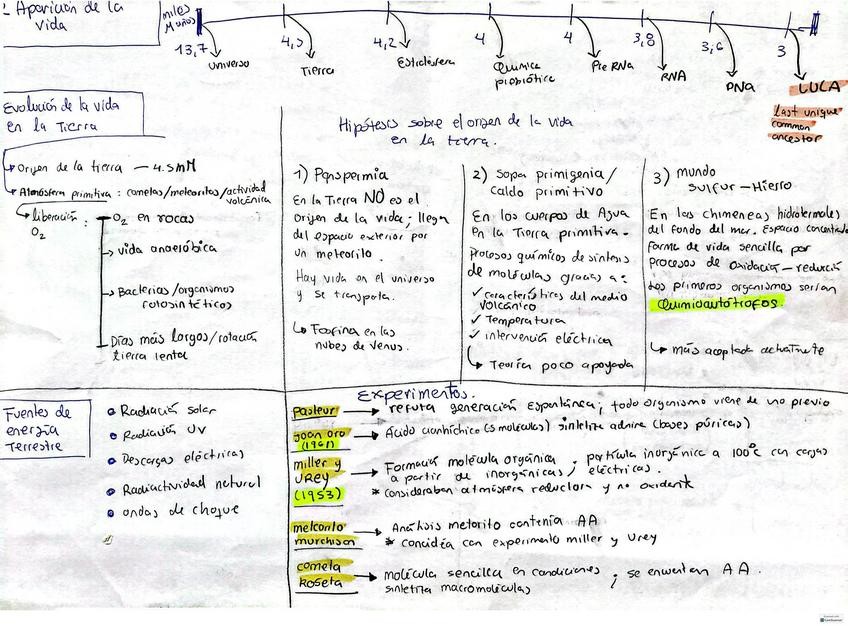 1. Aparición de la
vida
miles
M años
13,7 4,5 4,2 4 4 3,8 3,6 3
universo
Tierra
Estratósfera
Química
probiótica
Pre RNA
RNA
DNA
LUCA
last unique
common
ancestor
Evolución de la vida
en la Tierra
Origen de la tierra — 4.5 mM
Atmósfera primitiva : cometas/meteoritos/actividad
volcánica
liberación :
O2
O2 en rocas
vida anaeróbica
Bacterias/organismos
fotosintéticos
Días más largos/rotación
tierra lenta
Hipótesis sobre el origen de la vida
en la tierra.
1) Panspermia
En la Tierra NO es el
origen de la vida; llega
del espacio exterior por
un meteorito.
Hay vida en el universo
y se transporta.
↳ Fosfina en las
nubes de venus.
2) Sopa primigenia/
caldo primitivo
En los cuerpos de Agua
en la Tierra primitiva.
Procesos químicos de síntesis
de moléculas gracias a:
✓ características del medio
volcánico
✓ Temperatura
✓ intervención eléctrica
↳ Teoría poco apoyada
3) mundo
Sulfur - Hierro
En las chimeneas hidrotermales
del fondo del mar. Espacio concentrado
forma de vida sencilla por
procesos de oxidación - reducción
Los primeros organismos serían
Quimioautótrofos.
↳ más aceptada
Fuentes de
energía
Terrestre
Radiación solar
Radiación UV
Descargas eléctricas
Radiactividad natural
ondas de choque
Experimentos.
Pasteur → refuta generación espontánea; todo organismo viene de uno previo
Joan oro → Ácido cianhídrico (5 moléculas) sintetiza adenina (bases púricas)
(1961)
miller y
UREY
(1953)
→ Formación molécula orgánica ; partícula inorgánica a 100°C con cargas
a partir de inorgánicas, eléctricas.
* consideraban atmósfera reductora y no oxidante
murchison
→ Análisis metorito contenía AA
* concidía con experimento miller y Urey
cometa
Roseta
→ molécula sencilla en condiciones ; se encuentan AA.
sintetiza macromoléculas